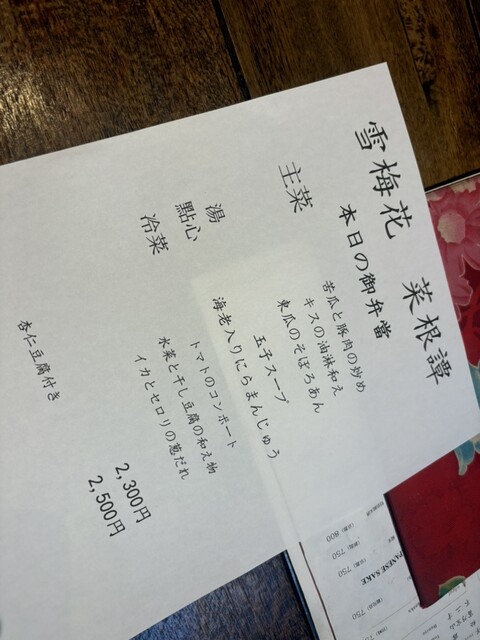 雪梅花　菜根譚
本日の御弁當
主菜
苦瓜と豚肉の炒め
キスの油淋和え
東瓜のそぼろあん
湯
玉子スープ
點心
海老入りにらまんじゅう
冷菜
トマトのコンポート
水菜と干し豆腐の和え物
イカとセロリの葱だれ
2,300円
杏仁豆腐付き
2,500円
800
750
750
PANESE SAKE
750